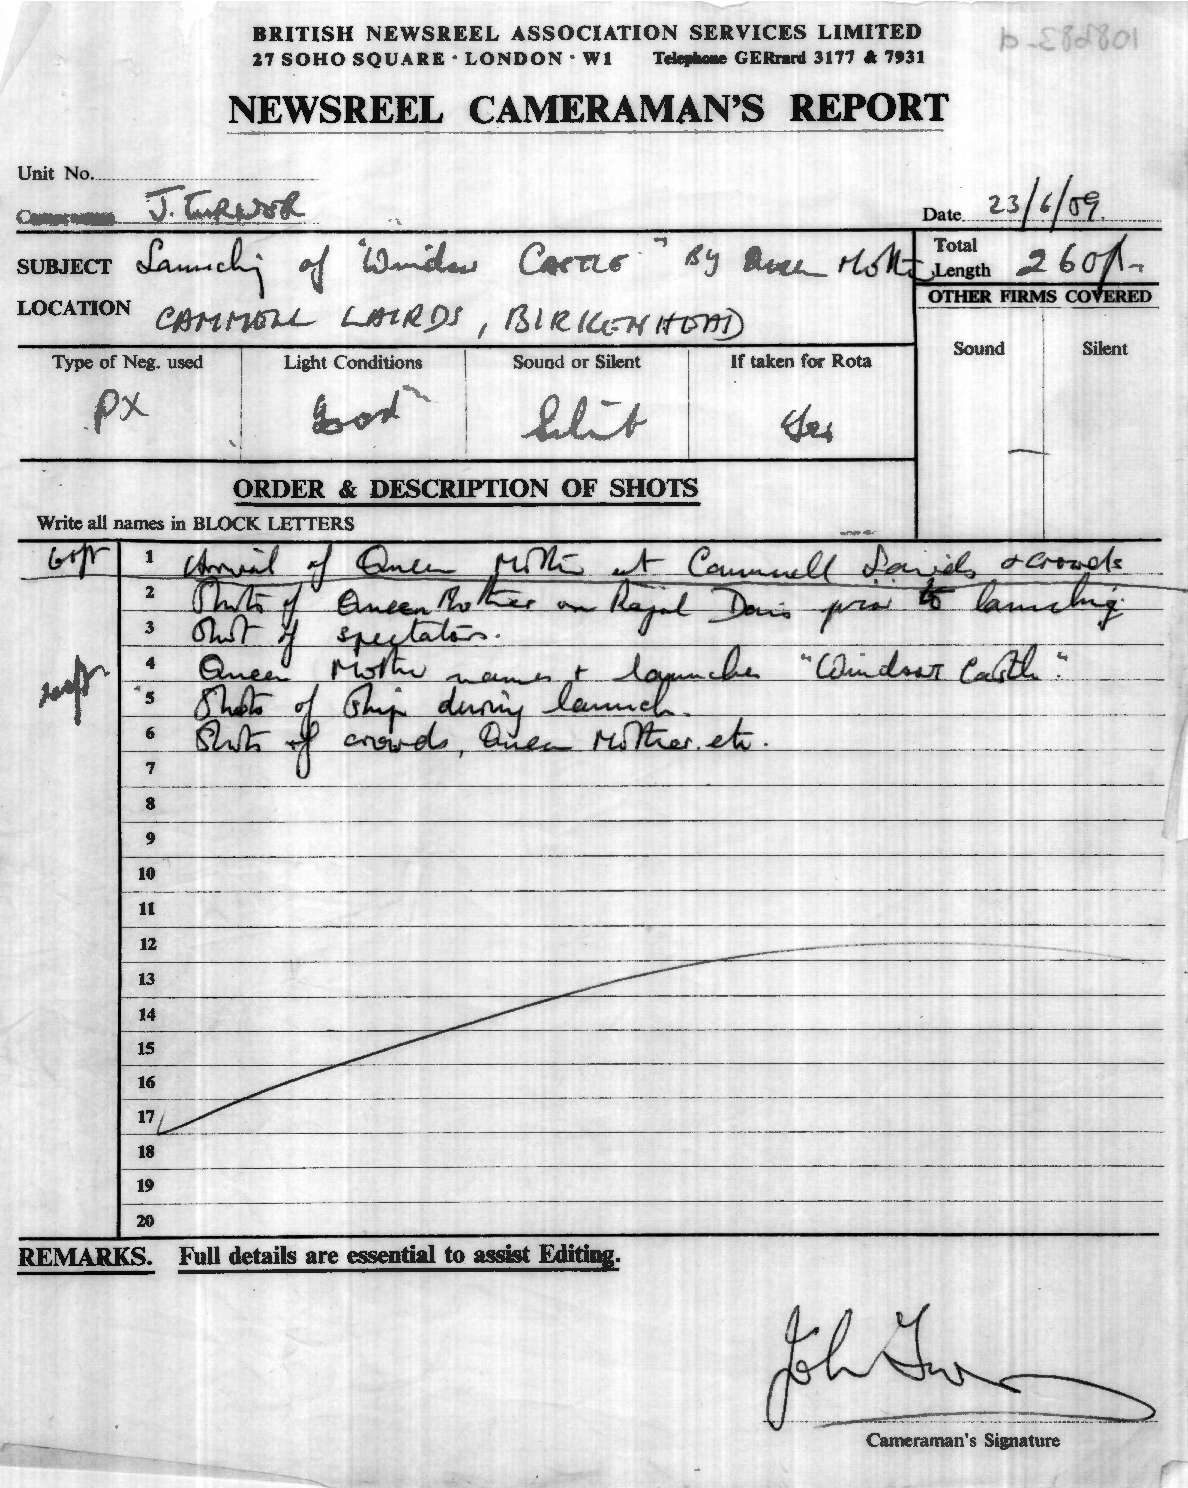 BRITISH NEWSREEL ASSOCIATION SERVICES LIMITED
27 SOHO SQUARE · LONDON · W1 Telephone GERrard 3177 & 7931
NEWSREEL CAMERAMAN'S REPORT
Unit No.
Cameraman J. TURNER
Date 23/6/59.
SUBJECT Launching of "Windsor CASTLE" By Queen Mother
Total Length 260ft
LOCATION CAMMELL LAIRDS, BIRKENHEAD
OTHER FIRMS COVERED
Sound Silent
Type of Neg. used Light Conditions Sound or Silent If taken for Rota
PX Good Silent Yes
ORDER & DESCRIPTION OF SHOTS
Write all names in BLOCK LETTERS
60ft 1 Arrival of Queen Mother at Cammell Lairds & crowds
2 Shots of Queen Mother on Royal Dais prior to launching.
3 Shot of spectators.
4 Queen Mother names & launches "Windsor Castle".
200ft 5 Shots of ship during launch.
6 Shots of crowds, Queen Mother. etc.
7
8
9
10
11
12
13
14
15
16
17
18
19
20
REMARKS. Full details are essential to assist Editing.
John Turner
Cameraman's Signature